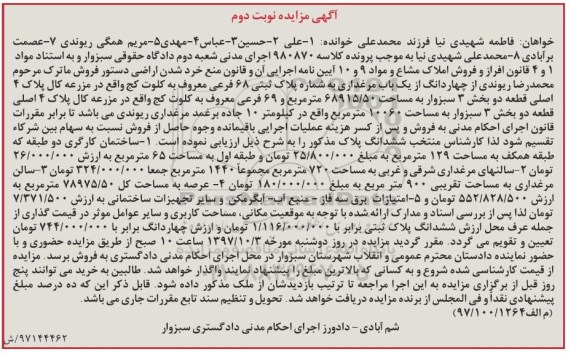 آگهی مزایده نوبت دوم
خواهان: فاطمه شهیدی نیا فرزند محمدعلی خوانده: ۱-علی ۲-حسین۳-عباس۴-مهدی۵-مریم همگی ریوندی ۷-عصمت
برآبادی ۸-محمدعلی شهیدی نیا به موجب پرونده کلاسه ۹۸۰۸۷۰ اجرای مدنی شعبه دوم دادگاه حقوقی سبزوار و به استناد مواد
۱ و ۴ قانون افراز و فروش املاک مشاع و مواد ۹ و ۱۰ آیین نامه اجرایی آن و قانون منع خرد شدن اراضی دستور فروش ماترک مرحوم
محمدرضا ریوندی از چهاردانگ از یک باب مرغداری به شماره پلاک ثبتی ۶۸ فرعی معروف به کلوت کچ واقع در مزرعه کال پلاک ۴
اصلی قطعه دو بخش ۳ سبزوار به مساحت ۶۸۹۱۵/۵۰ مترمربع و ۶۹ فرعی معروف به کلوت کچ واقع در مزرعه کال پلاک ۴ اصلی
قطعه دو بخش ۳ سبزوار به مساحت ۱۰۰۶۰ مترمربع واقع در کیلومتر ۱۰ جاده برغمد مرغداری ریوندی می باشد تا برابر مقررات
قانون اجرای احکام مدنی به فروش و پس از کسر هزینه عملیات اجرایی باقیمانده وجوه حاصل از فروش نسبت به سهام بین شرکاء
تقسیم شود لذا کارشناس منتخب ششدانگ پلاک مذکور را به شرح ذیل ارزیابی نموده است. ۱-ساختمان کارگری دو طبقه که
طبقه همکف به مساحت ۱۲۹ مترمربع به مبلغ ۲۵/۸۰۰/۰۰۰ تومان و طبقه اول به مساحت ۶۵ مترمربع به ارزش ۲۶/۰۰۰/۰۰۰
تومان ۲-سالنهای مرغداری شرقی و غربی به مساحت ۷۲۰ مترمربع مجموعاً ۱۴۴۰ مترمربع جمعا ۳۲۴/۰۰۰/۰۰۰ تومان ۳-سالن
مرغداری به مساحت تقریبی ۹۰۰ متر مربع به مبلغ ۱۸۰/۰۰۰/۰۰۰ تومان ۴- عرصه به مساحت کل ۷۸۹۷۵/۵۰ مترمربع به
ارزش ۵۵۲/۸۲۸/۵۰۰ تومان و ۵-امتیازات برق سه فاز - منبع آب- آبگرمکن و سایر تجهیزات ساختمانی به ارزش ۷/۳۷۱/۵۰۰
تومان لذا پس از بررسی اسناد و مدارک ارائه شده با توجه به موقعیت مکانی، مساحت کاربری و سایر عوامل موثر در قیمت گذاری از
جمله عرف محل ارزش ششدانگ پلاک ثبتی برابر با ۱/۱۱۶/۰۰۰/۰۰۰ تومان و ارزش چهاردانگ برابر با ۷۴۴/۰۰۰/۰۰۰ تومان
تعیین و تقویم می گردد. مقرر گردید مزایده در روز دوشنبه مورخه ۱۳۹۷/۱۰/۳ ساعت ۱۰ صبح از طریق مزایده حضوری و با
حضور نماینده دادستان محترم عمومی و انقلاب شهرستان سبزوار در محل اجرای احکام مدنی دادگستری به فروش برسد. مزایده
از قیمت کارشناسی شده شروع و به کسانی که بالاترین مبلغ را پیشنهاد نمایند واگذار خواهد شد. طالبین به خرید می توانند پنج
روز قبل از برگزاری مزایده به این اجرا مراجعه تا ترتیب بازدیدشان از ملک مذکور داده شود. قابل ذکر این که ده درصد مبلغ
پیشنهادی نقداً و فی المجلس از برنده مزایده دریافت خواهد شد. تحویل و تنظیم سند تابع مقررات جاری می باشد.
(م الف ۹۷/۱۰۰/۱۲۶۴)
شم آبادی - دادورز اجرای احکام مدنی دادگستری سبزوار
۹۷۱۴۴۴۶۲/ش